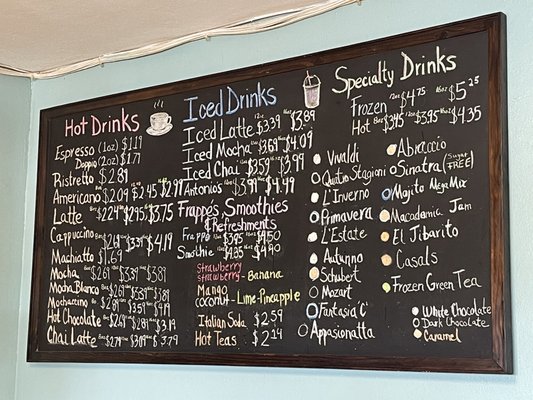 Hot Drinks
Espresso (1oz) $1.19
Doppio (2oz) $1.79
Ristretto $2.89
Americano $2.09 $2.45 $2.99
Latte $2.95 $3.75
Cappuccino $2.69 $3.39 $4.19
Machiatto $1.69
Mocha $2.69 $3.39
Mocha Blanco
Mochaccino
Hot Chocolate $3.19
Chai Latte
Iced Drinks
12oz 16oz
Iced Latte $3.39 $3.89
Iced Mocha $3.69 $4.09
Iced Chai $3.59 $3.99
Antonios $3.99 $4.49
Frappés, Smoothies
& Refreshments
Frappe $3.95 $4.50
Smoothie $4.35 $4.90
Strawberry
Strawberry - Banana
Mango
Coconut - Lime - Pineapple
Italian Soda $2.59
Hot Teas $2.14
Specialty Drinks
12oz 16oz
Frozen $4.75 $5.25
Hot $3.45 $3.95 $4.35
Vivaldi
Quatro Stagioni
L'Inverno
Primavera
L'Estate
Autunno
Schubert
Mozart
Fantasia 'C'
Appasionatta
Abraccio
Sinatra (Sugar FREE)
Mojito Mega Mix
Macadamia Jam
El Jibarito
Casals
Frozen Green Tea
White Chocolate
Dark Chocolate
Caramel